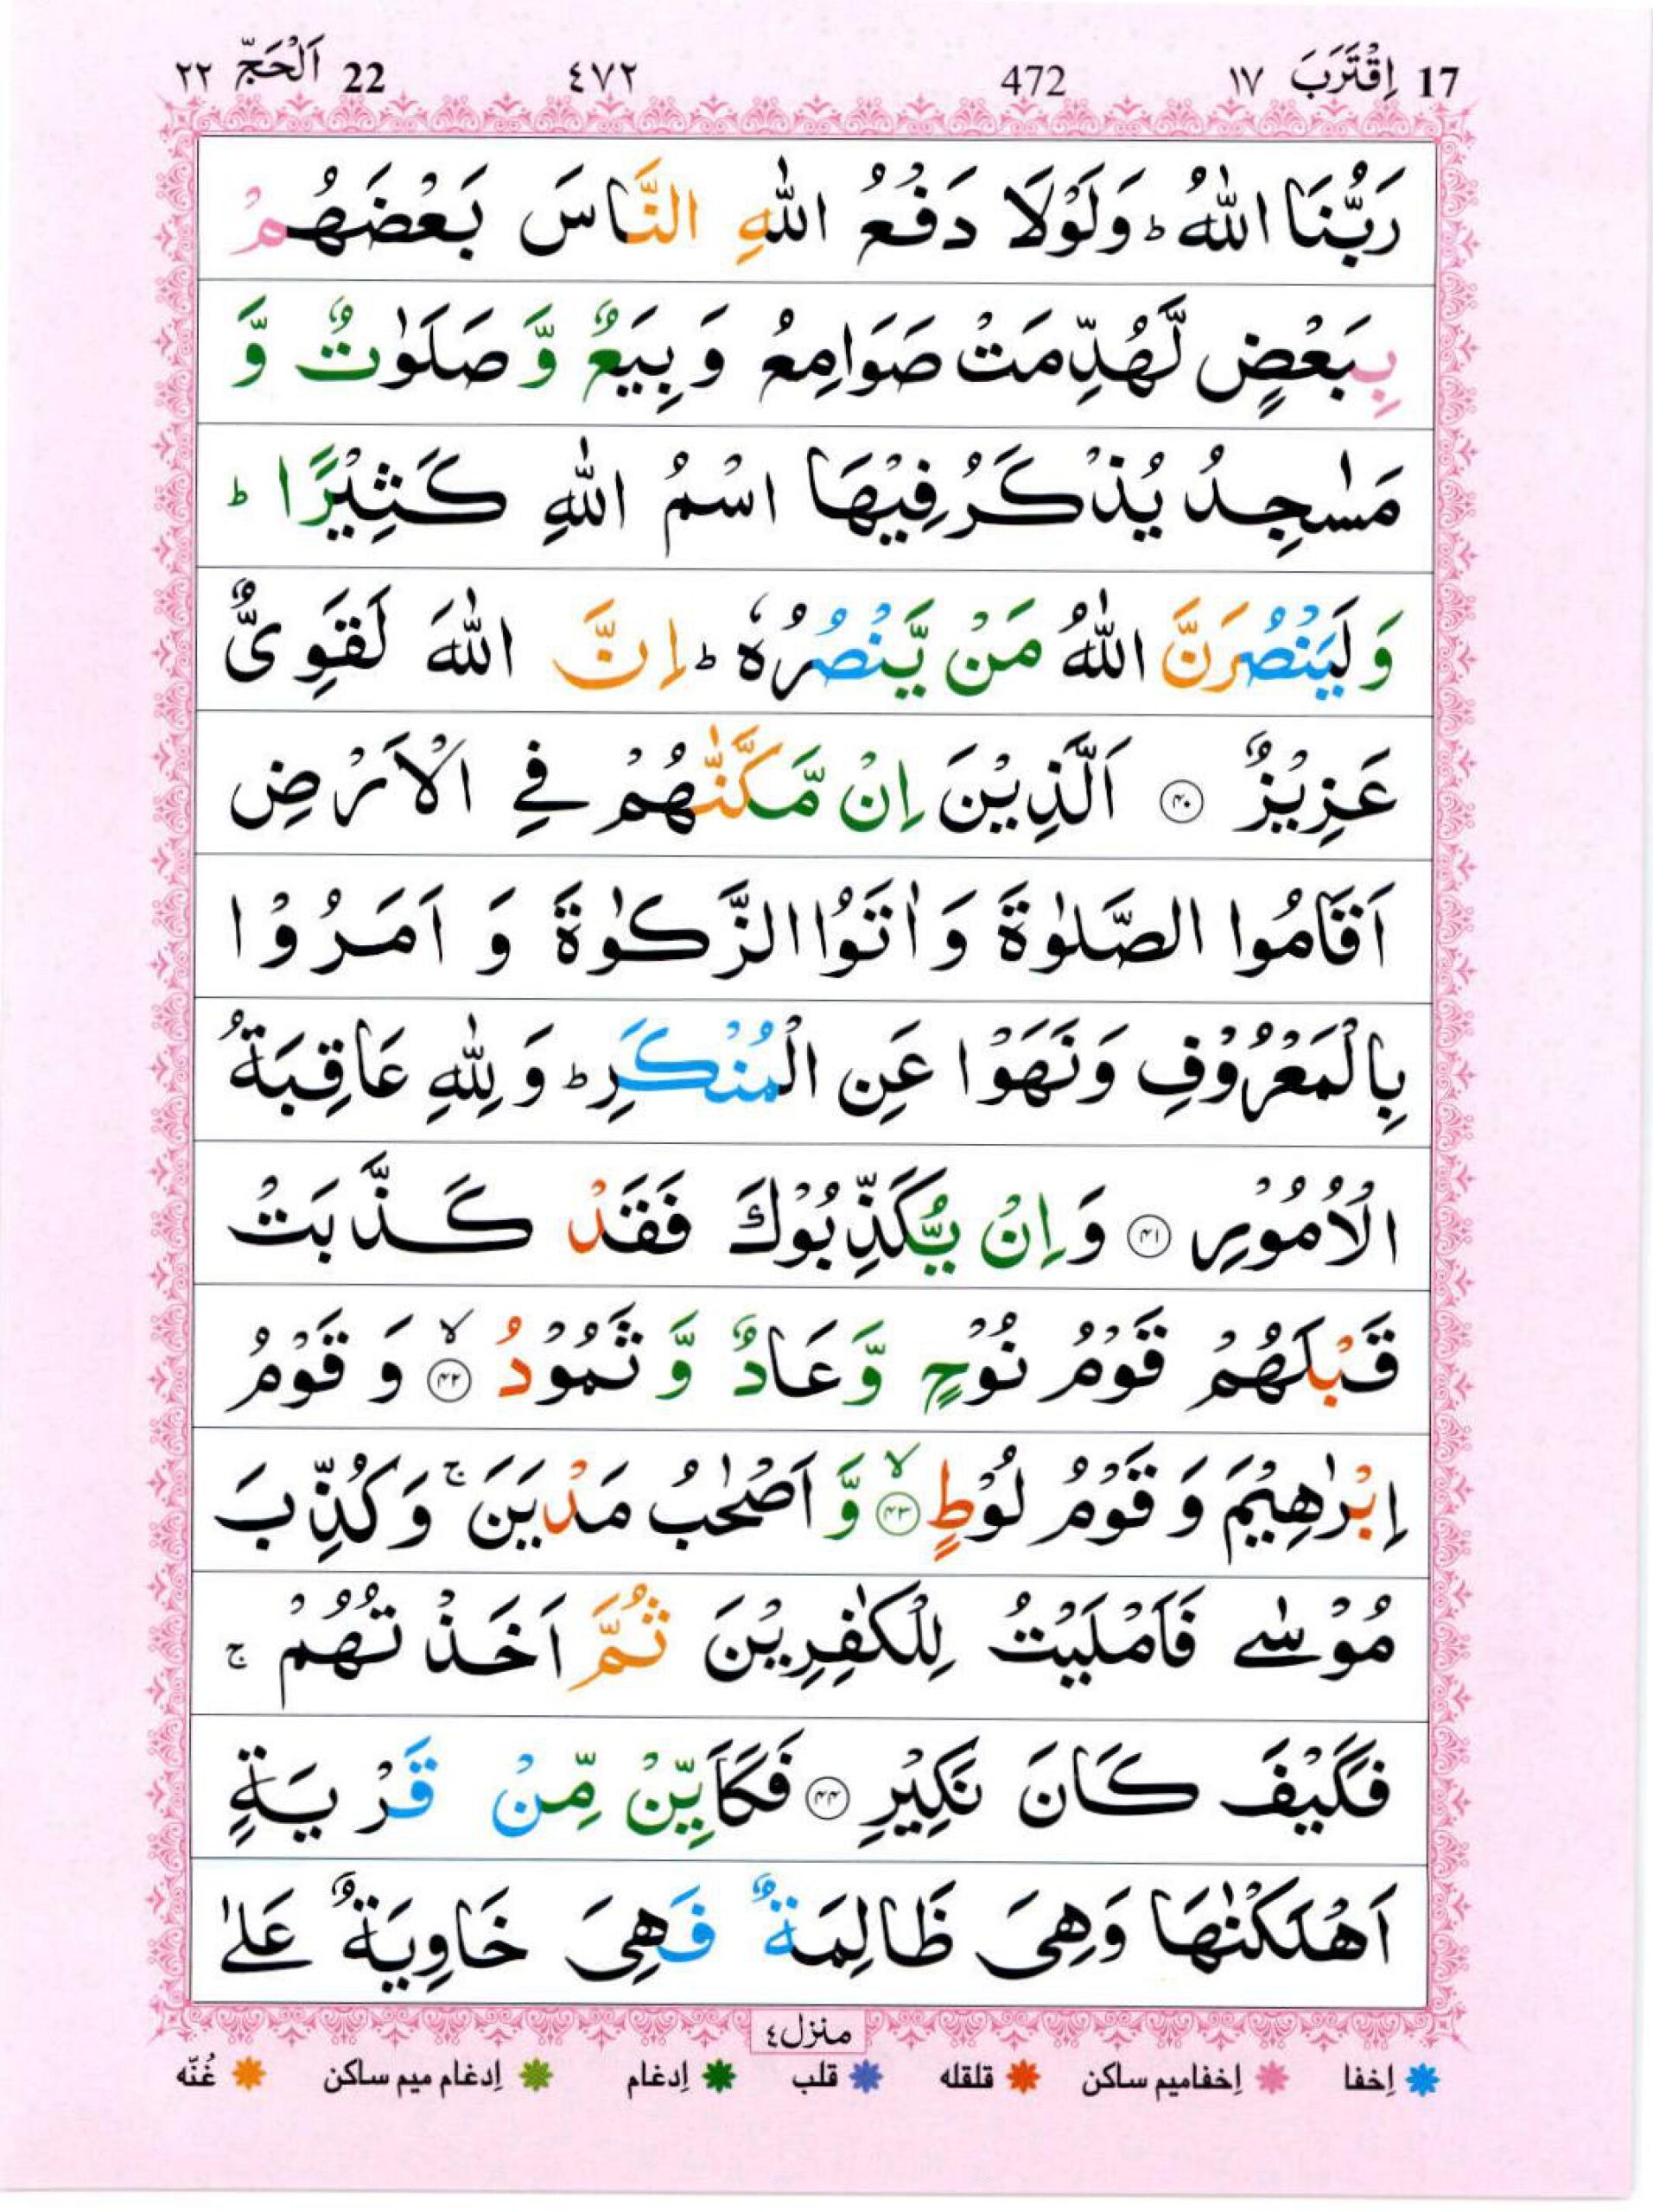 17 اِقْتَرَبَ ١٧ 472 ٤٧٢ 22 اَلْحَجّ ٢٢
رَبُّنَا اللّٰهُ ؕ وَلَوْلَا دَفْعُ اللّٰهِ النَّاسَ بَعْضَهُمْ
بِبَعْضٍ لَّهُدِّمَتْ صَوَامِعُ وَ بِيَعٌ وَّ صَلَوٰتٌ وَّ
مَسٰجِدُ يُذْكَرُ فِيْهَا اسْمُ اللّٰهِ كَثِيْرًا ؕ
وَلَيَنْصُرَنَّ اللّٰهُ مَنْ يَّنْصُرُهٗ ؕ اِنَّ اللّٰهَ لَقَوِىٌّ
عَزِيْزٌ ﴿۴۰﴾ اَلَّذِيْنَ اِنْ مَّكَّنّٰهُمْ فِے الْاَرْضِ
اَقَامُوا الصَّلٰوةَ وَ اٰتَوُا الزَّكٰوةَ وَ اَمَرُوْا
بِالْمَعْرُوْفِ وَنَهَوْا عَنِ الْمُنْكَرِ ؕ وَ لِلّٰهِ عَاقِبَةُ
الْاُمُوْرِ ﴿۴۱﴾ وَ اِنْ يُّكَذِّبُوْكَ فَقَدْ كَذَّبَتْ
قَبْلَهُمْ قَوْمُ نُوْحٍ وَّ عَادٌ وَّ ثَمُوْدُ ۙ﴿۴۲﴾ وَ قَوْمُ
اِبْرٰهِيْمَ وَ قَوْمُ لُوْطٍ ۙ﴿۴۳﴾ وَّ اَصْحٰبُ مَدْيَنَ ۚ وَكُذِّبَ
مُوْسٰے فَاَمْلَيْتُ لِلْكٰفِرِيْنَ ثُمَّ اَخَذْتُهُمْ ۚ
فَكَيْفَ كَانَ نَكِيْرِ ﴿۴۴﴾ فَكَاَيِّنْ مِّنْ قَرْيَةٍ
اَهْلَكْنٰهَا وَهِىَ ظَالِمَةٌ فَهِىَ خَاوِيَةٌ عَلٰے
منزل٤
إخفا إخفامیم ساکن قلقله قلب إدغام إدغام میم ساکن غُنّه